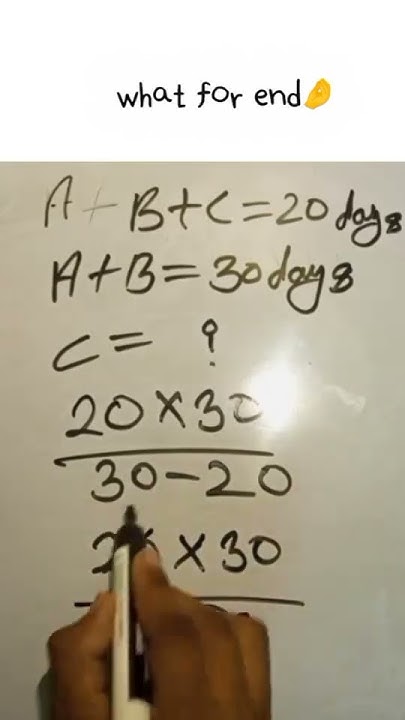 what for end
A + B + C = 20 days
A + B = 30 days
C = ?
20 × 30
30 - 20
× 30